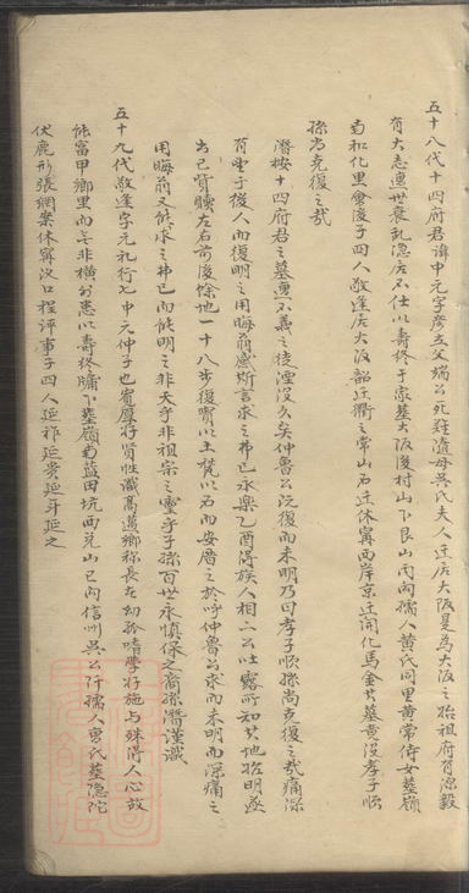 五十八代十四府君諱中元字彥立父端公死難遺母吳氏夫人迁居大阪是為大阪之始祖府君深毅
有大志遭世衰乱隐居不仕以壽終于家墓大阪後村山下艮山丙向孺人黄氏同里黄常侍女墓嶺
南和化里會後子四人敬逢居大阪韶迁衢之常山石迁休寧西岸京迁開化馬金其墓竟没孝子順
孫尚克復之哉
潛按十四府君之墓遭不義之徒湮没久矣仲魯公沅復而未明乃曰孝子順孫尚克復之哉痛深
有望于後人而復明之用晦前感斯言求之弗已永樂乙酉得族人相二公吐露所知其地始明遂
出己貲贖左右前後餘地一十八步復實以土甃以石而安厝之於呼仲魯公求而未明而深痛之
用晦前又能求之弗已而能明之非天乎非祖宗之靈乎子孫百世永慎保之裔孫潛謹識
五十九代敬逢字元礼行七中元仲子也寬厚好賢性識高邁鄉称長者幼孤嗜學好施与殊得人心故
能富甲鄉里而无非横分患以壽終牖下墓嶺南藍田坑西兑山巳向信州吳公阡孺人曾氏墓隐陀
伏鹿形張網案休寧汊口程評事子四人延祚延贵延斗延之